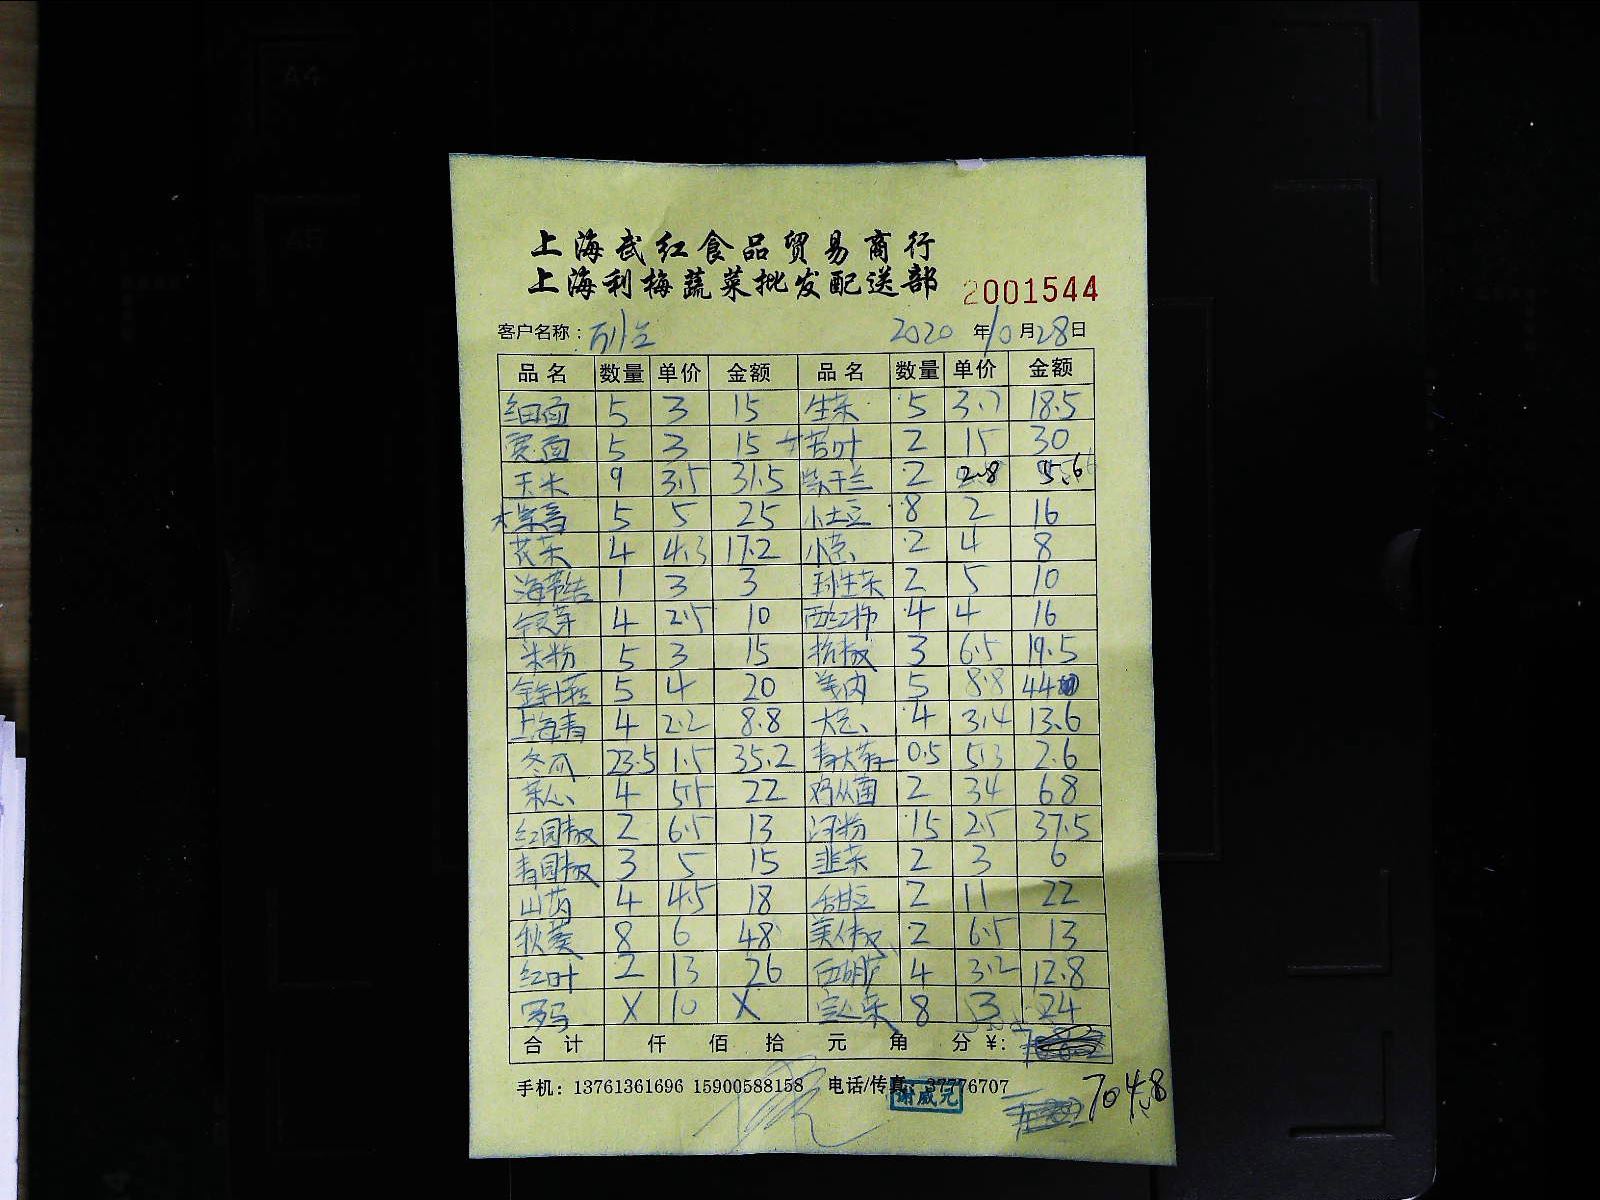 上海武红食品贸易商行
上海利梅蔬菜批发配送部 2001544
客户名称: 2020年10月28日
品名 数量 单价 金额 品名 数量 单价 金额
细面 5 3 15 生菜 5 3.7 18.5
宽面 5 3 15 苦叶 2 15 30
玉米 9 3.5 31.5 紫干兰 2 2.8 5.6
5 5 25 小土豆 8 2 16
花菜 4 4.3 17.2 小葱 2 4 8
海带结 1 3 3 球生菜 2 5 10
银芽 4 2.5 10 西红柿 4 4 16
米粉 5 3 15 杭椒 3 6.5 19.5
金针菇 5 4 20 5 8.8 44
上海青 4 2.2 8.8 大葱 4 3.4 13.6
冬瓜 23.5 1.5 35.2 0.5 5.3 2.6
菜心 4 5.5 22 鸡从菌 2 34 68
红园椒 2 6.5 13 河粉 15 2.5 37.5
青园椒 3 5 15 韭菜 2 3 6
山药 4 4.5 18 甜豆 2 11 22
秋葵 8 6 48 美人椒 2 6.5 13
红叶 2 13 26 西葫芦 4 3.2 12.8
罗马 X 10 X 8 3 24
合计 仟 佰 拾 元 角 分 ¥:
手机: 13761361696 15900588158 电话/传真: 37776707
谢威完
704.8